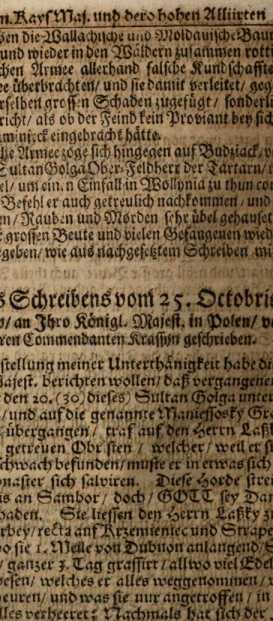 n. Kays Maj. und dero hohen Alliirten
hen die Wallachische und Moldauische Bau
und wieder in den Wäldern zusammen rotti
chen Armee allerhand falsche Kundschafft
ee überbrachten/ und sie damit verleitet/ geg
rselben grossen Schaden zugefügt/ sonderli
richt/ als ob der Feind kein Proviant bey sich
eingebracht hätte.
che Armee zöge sich hingegen auf Budziack/
Sultan Golga Ober-Feldherr der Tartarn/
el/ um ein.n Einfall in Wollynia zu thun co
Befehl er auch getreulich nachkommen/ und
n/ Rauben und Morden sehr übel gehauset
t grossen Beute und vielen Gefangenen wied
geben/ wie aus nachgesetztem Schreiben mi
s Schreibens vom 25. Octobris
/ an Ihro Königl. Majest. in Polen/
ven Commendanten Krassyn geschrieben.
stellung meiner Unterthänigkeit habe di
Majest. berichten wollen/ daß vergangene
den 20. (30) dieses) Sultan Golga unter
/ und auf die genannte Gr
übergangen/ traf auf den Herrn Laßk
getreuen Obristen / welcher/ weil er s
chwach befunden/ muste er in etwas sich
naster sich salviren. Diese Horde strei
is an Sambor/ doch/ GOTT sey Dan
haden. Sie liessen den Herrn Laßky z
rbey/ recta auf Krzemieniec und Strape
o sie 1. Meile von Dubnon anlangend/ S
/ ganzer 3. Tag grassirt/ allwo viel Edel
esen/ welches er alles weggenommen/
euren/ und was sie nur angetroffen/ in
lles verheeret: Nachmals hat sich der